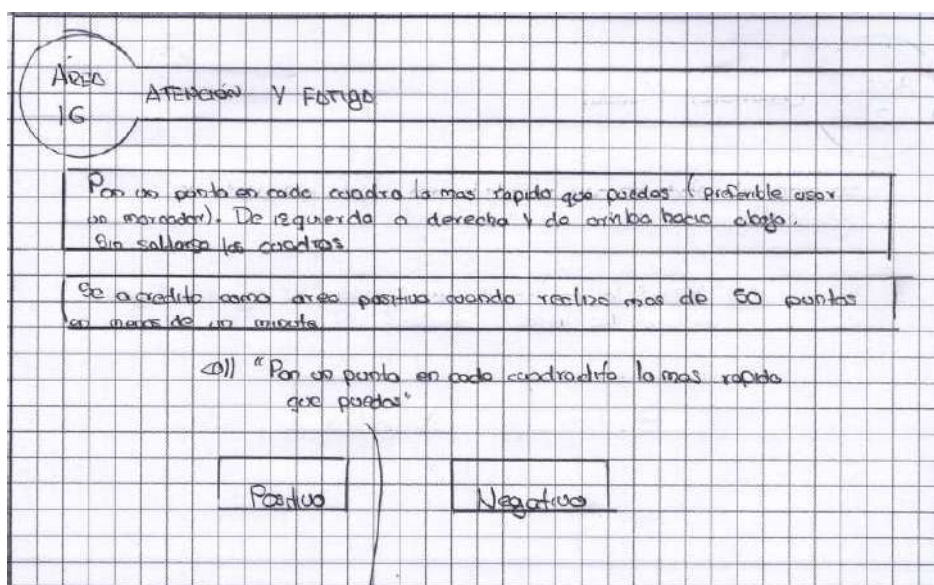 ÁREA
16
ATENCIÓN Y FATIGA
Pon un punto en cada cuadro lo mas rapido que puedas (preferible usar
un marcador). De izquierda a derecha y de arriba hacia abajo.
Sin saltarse los cuadros
Se acredita como area positiva cuando realiza mas de 50 puntos
en menos de un minuto
"Pon un punto en cada cuadradito lo mas rapido
que puedas"
Positivo
Negativo